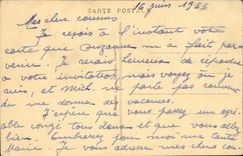 CARTE POSTALE
16 juin 1933
Mes chers cousins
Je reçois à l'instant votre
carte que Suzanne m'a fait par
venir. Je serais heureuse de répondre
à votre invitation, mais voyez où je
suis, et Mich. ne parle pas encore
de me donner des vacances.
J'espère que vous passez un agré
able congé tous deux et que vous allez
bien. Embrassez pour moi ma tante
Marie. Je vous adresse mes chers cou